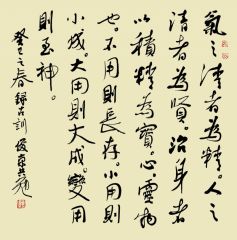 氣之清者為精。人之
清者為賢。治身者
以積精為寶。心靈物
也。不用則長存。小用則
小成。大用則大成。變用
則至神。
春錄古訓